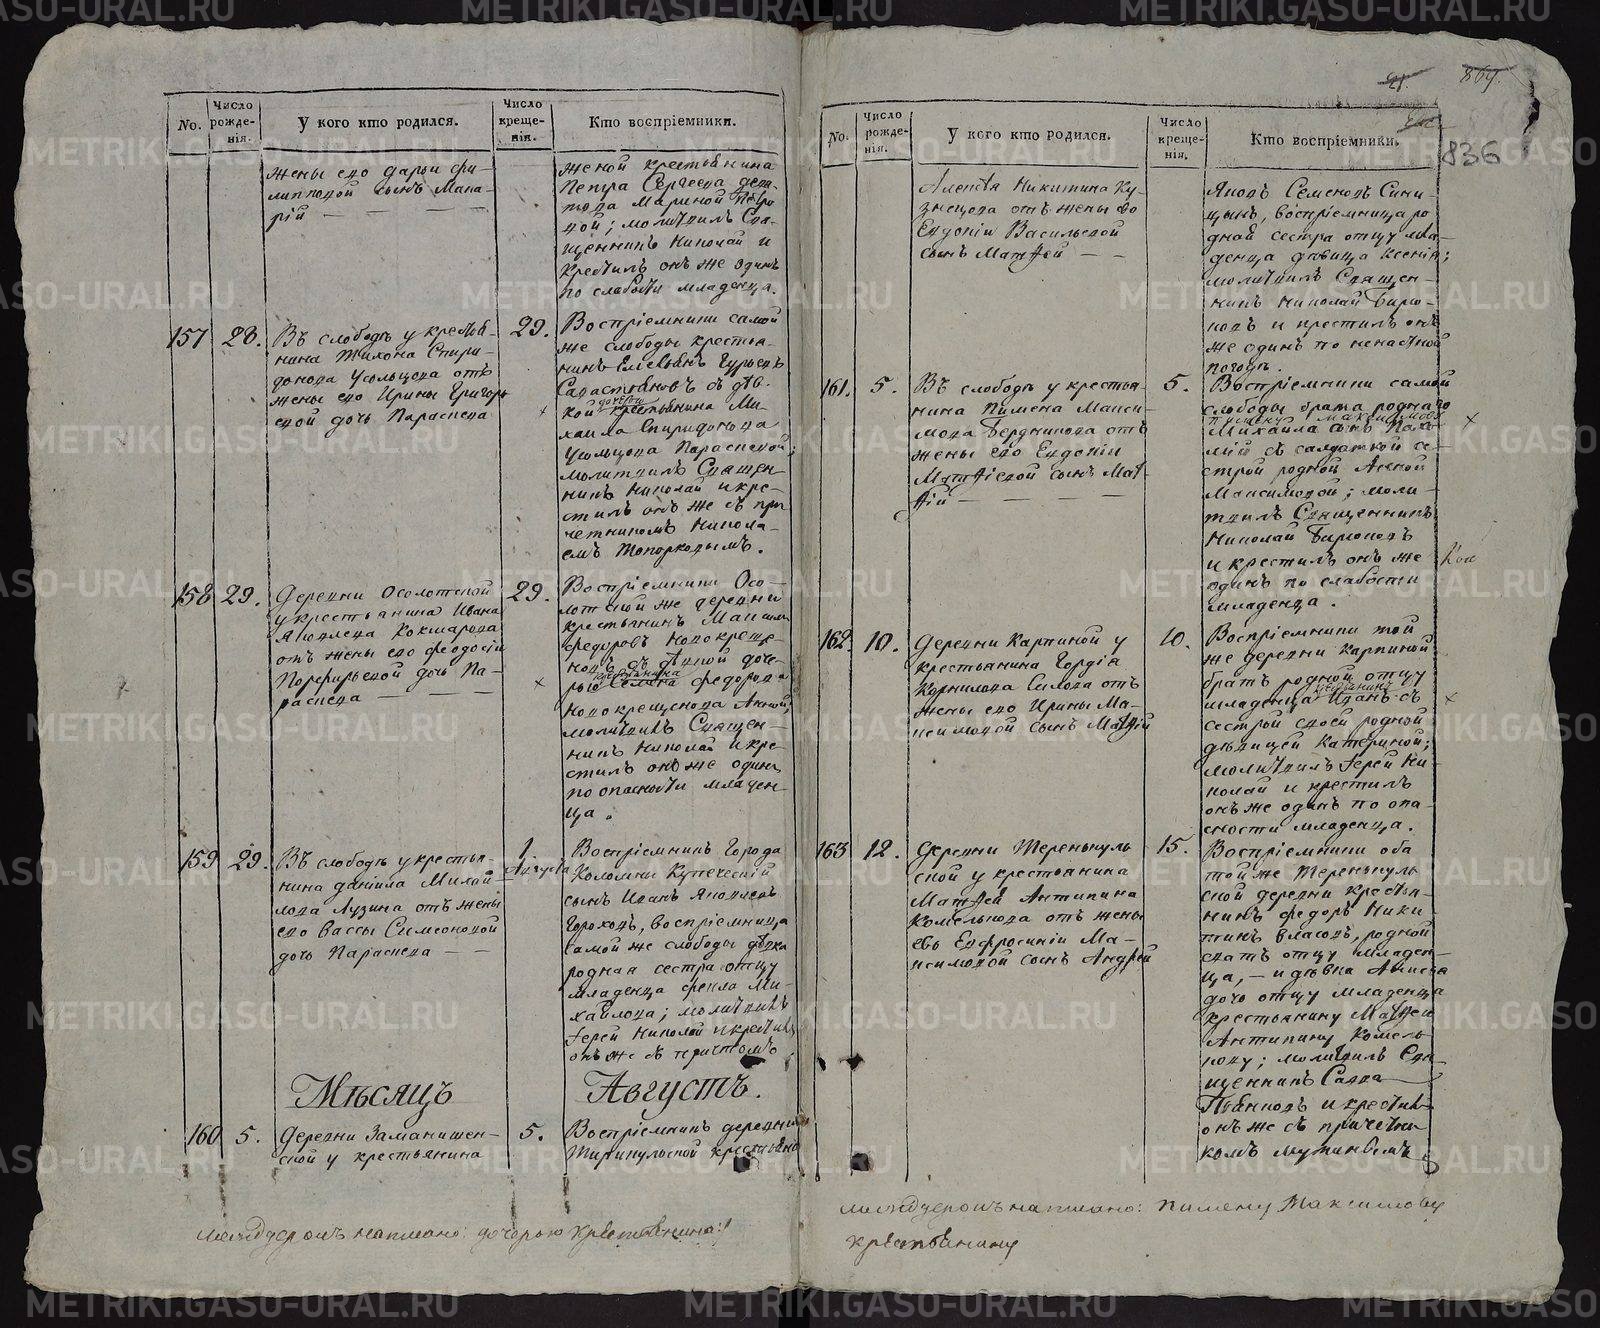 No.
Число рожде-нія.
У кого кто родился.
Число креще-нія.
Кто воспріемники.
жены его Дарьи Фи-
липповой сынъ Мака-
рій — — — —
женой крестьянина
Петра Сергеева
Мариной
; молитвилъ Свя-
щенникъ Николай и
крестилъ онъ же одинъ
по слабости младенца.
157
28.
Въ слободѣ у крестья-
нина Тихона Спири-
донова Усольцова отъ
жены его Ирины Григорь
евой дочь Параскева
29.
Воспріемники самой
же слободы крестья-
нинъ Гурьевъ
Севастьяновъ съ дѣв-
кой дочерью крестьянина Ми-
хаила Спиридонова
Усольцова Параскевой;
молитвилъ Священ-
никъ Николай и кре-
стилъ онъ же съ при
четникомъ Никола-
емъ Топорковымъ.
158
29.
Деревни Осолотской
у крестьянина Ивана
Яковлева Кокшарова
отъ жены его Феодосіи
Порфирьевой дочь Па-
раскева — — —
29.
Воспріемники Осо-
лотской же деревни
крестьянинъ Максимъ
Федоровъ Новокреще-
новъ съ дѣвкой доче-
рью крестьянина Федорова
Новокрещенова Анной;
молитвилъ Священ-
никъ Николай и кре-
стилъ онъ же одинъ
по опасности младен-
ца.
159
29.
Въ слободѣ у крестья-
нина Даніила Михай-
лова Лузина отъ жены
его Вассы Симеоновой
дочь Параскева — —
1.
Августа
Воспріемникъ Города
Коломны Купеческій
сынъ Иванъ Яковлевъ
Гороховъ, воспріемница
самой же слободы дѣвка
родная сестра отцу
младенца Фекла Ми-
хайлова; молитвилъ
Іерей Николай и крестилъ
онъ же съ причтомъ
Мѣсяцъ Августъ.
160
5.
Деревни Заманишен-
ской у крестьянина
5.
Воспріемникъ деревни
крестьянинъ
между строкъ написано: дочерью крестьянина:/
21.
864.
836
No.
Число рожде-нія.
У кого кто родился.
Число креще-нія.
Кто воспріемники.
Никитина Ку-
знецова отъ жены его
Евдокіи Васильевой
сынъ Матѳей — —
Яковъ Семеновъ Сини-
цынъ, воспріемница ро
дная сестра отцу мла-
денца дѣвица Ксенія;
молитвилъ Священ-
никъ Николай Бирю-
ковъ и крестилъ онъ
же одинъ по ненастной
погодѣ.
161.
5.
Въ слободѣ у крестья-
нина Пимена Макси-
мова Бердникова отъ
жены его Евдокіи
Матѳіевой сынъ Мат-
ѳій — — — —
5.
Воспріемники самой
слободы брата роднаго
Пимену Максимову
Михайла сынъ
съ салдаткой се-
строй родной
Максимовой; моли-
твилъ Священникъ
Николай Бирюковъ
и крестилъ онъ же
одинъ по слабости
младенца.
162.
10.
Деревни Карпиной у
крестьянина Гордія
Корнилова Силова отъ
жены его Ирины Ма-
ксимовой сынъ Матѳій
10.
Воспріемники той
же деревни Карпиной
братъ родной отцу
крестьянинъ
младенца Иванъ съ
сестрой своей родной
дѣвицей Катериной;
молитвилъ Іерей Ни-
колай и крестилъ
онъ же одинъ по опа-
сности младенца.
163
12.
Деревни Теренькуль
ской у крестьянина
Матѳея Антипина
Комелькова отъ жены
его Евфросиніи Ма-
ксимовой сынъ Андрей
15.
Воспріемники оба
той же Теренькуль
ской деревни крестья-
нинъ Федоръ Ники-
тинъ Власовъ, родной
сватъ отцу младен-
ца, — и дѣвка
дочь отцу младенца
крестьянину Матѳею
Антипину Комель-
кову; молитвилъ Свя-
щенникъ Савва
Пьянковъ и крестилъ
онъ же съ причетни
комъ
между строкъ написано: Пимену Максимову
крестьянину